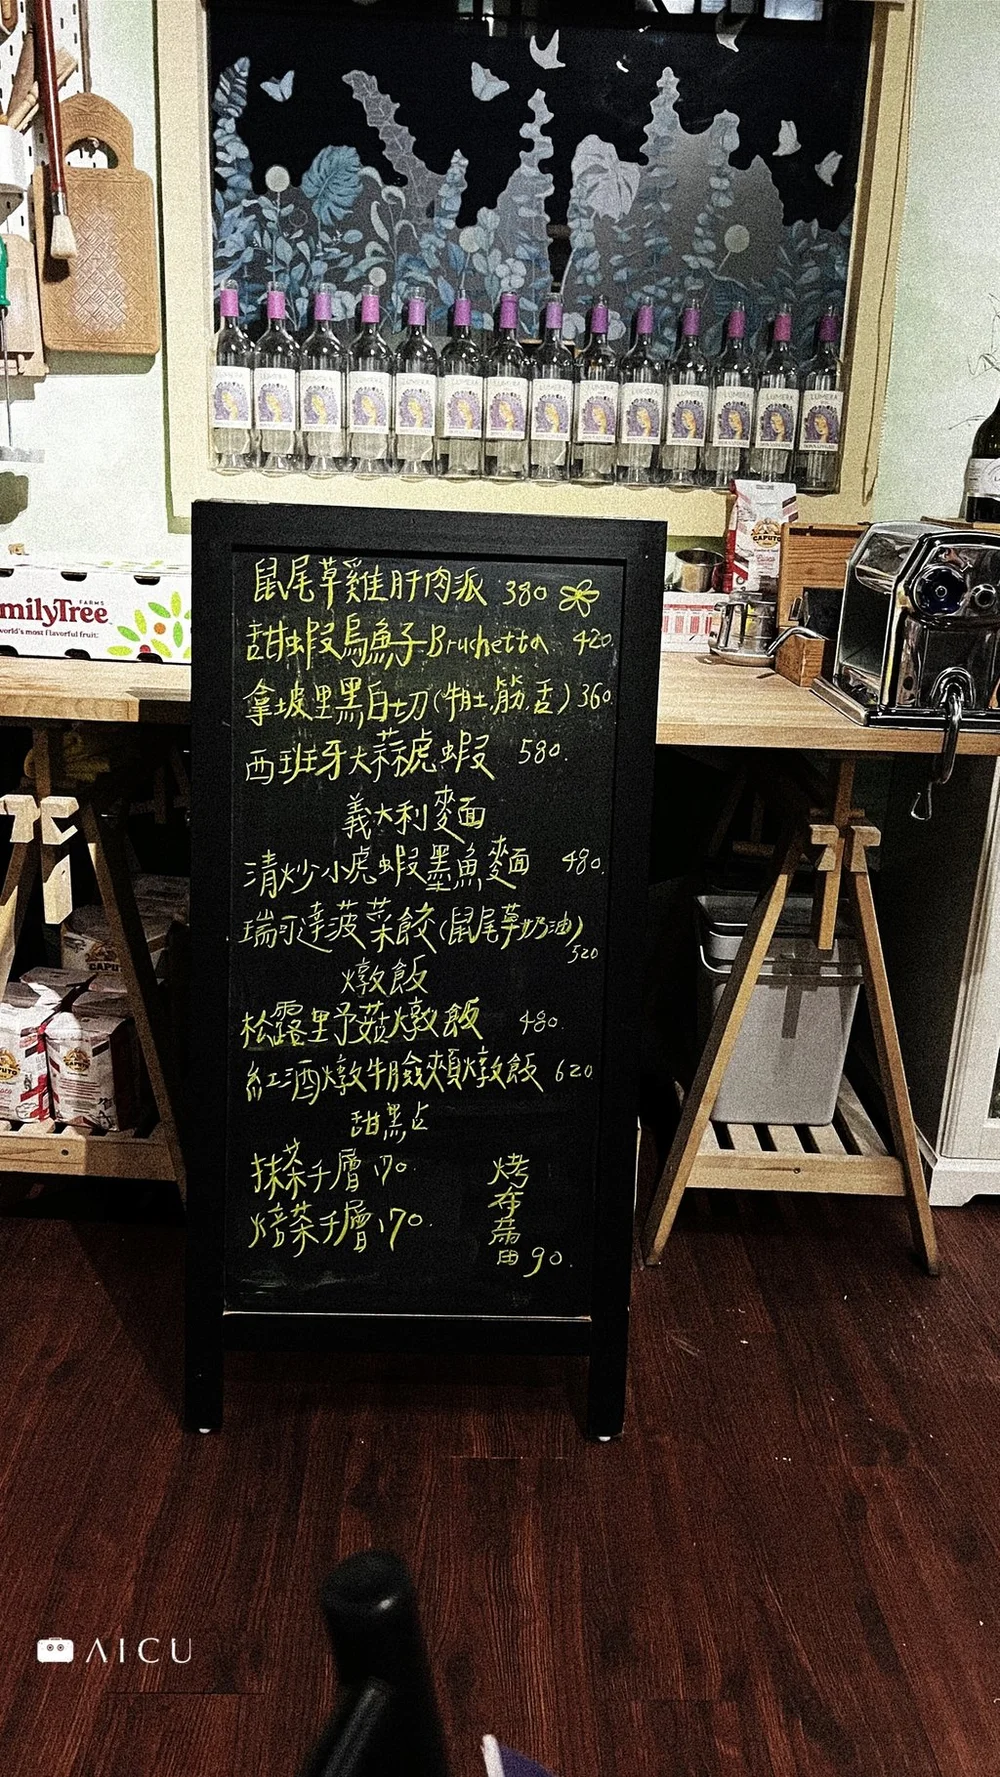 LUMERA
CAPUTO
milyTree
FARMS
world's most flavorful fruit.
鼠尾草雞肝肉派 380
甜蝦烏魚子Bruchetta 420.
拿坡里黑白切(牛肚.筋.舌) 360.
西班牙大蒜虎蝦 580.
義大利麵
清炒小虎蝦墨魚麵 480.
瑞可達菠菜餃(鼠尾草奶油)
520
燉飯
松露野菇燉飯 480.
紅酒燉牛臉頰燉飯 620
甜點
抹茶千層 170.
焙茶千層 170.
烤布蕾 90.
CAPUTO
AICU